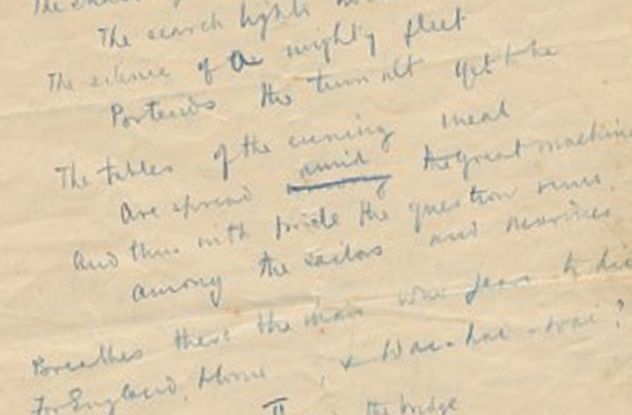 The search lights
The silence of a mighty fleet
Portends the tumult yet to be
The tables of the evening meal
Are spread amid the great machines
And thus with pride the question runs
Among the sailors and marines
Breathes there the man who fears to die
For England, Home, & Wai-hai-wai?
II
the bridge